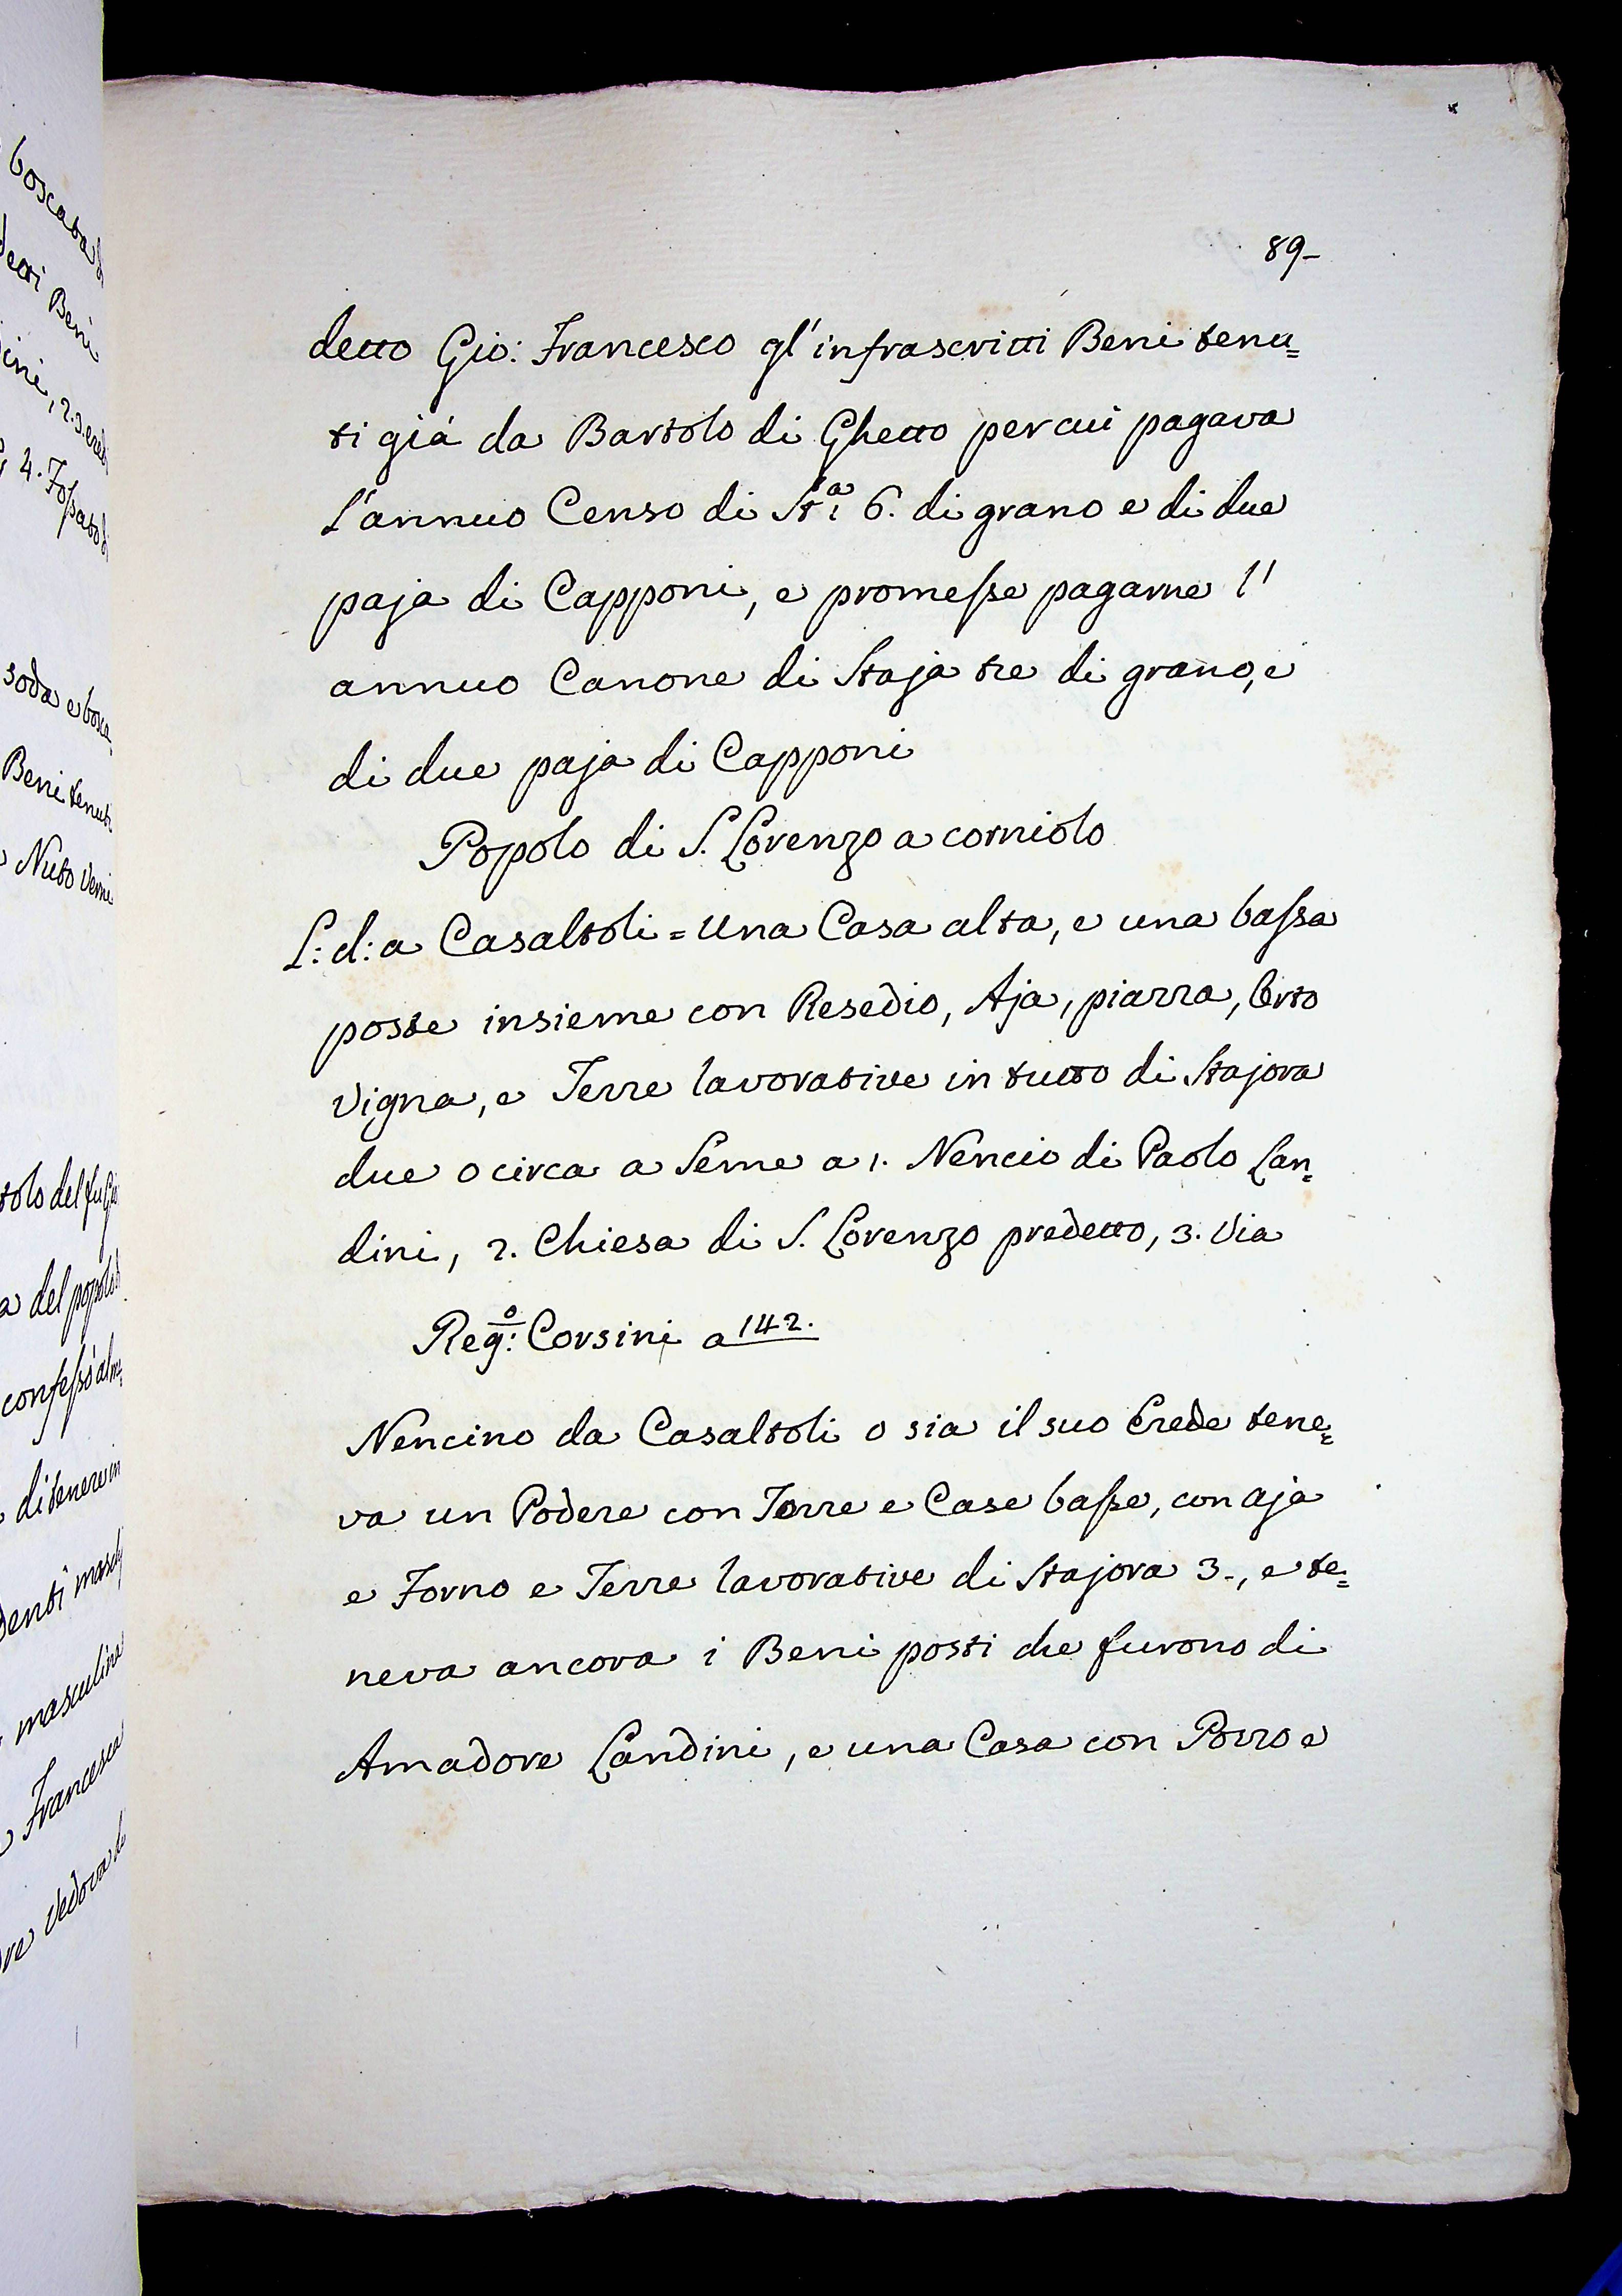 89-
detto Gio: Francesco gl'infrascritti Beni tenu=
ti già da Bartolo di Ghetto per cui pagava
l'annuo Censo di St.ª 6. di grano e di due
paja di Capponi, e promesse pagarne l'
annuo Canone di Staja tre di grano, e
di due paja di Capponi
Popolo di S. Lorenzo a corniolo
L: d: a Casaltoli = Una Casa alta, e una bassa
poste insieme con Resedio, Aja, piazza, Orto
Vigna, e Terre lavorative in tutto di Stajora
due o circa a Seme a 1. Nencio di Paolo Lan=
dini, 2. Chiesa di S. Lorenzo predetto, 3. Via
Reg:º Corsini a 142.
Nencino da Casaltoli o sia il suo Erede tene=
va un Podere con Torre e Case basse, con aja
e Forno e Terre lavorative di Stajora 3-, e te=
neva ancora i Beni posti che furono di
Amadore Landini, e una Casa con Pozzo e
boscata
detti Beni
4. Fossato
soda e bosca
Beni tenuti
Nuto
del popolo
confessò
di tenere in
masculini
Francesca
Vedova